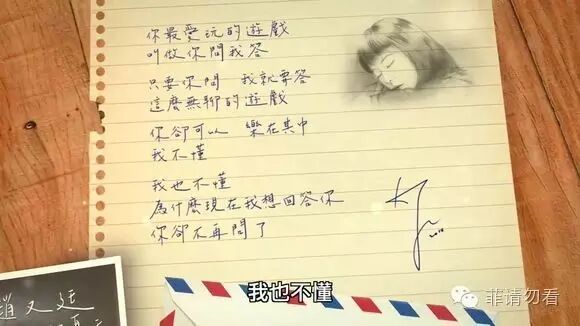 你最愛玩的遊戲
叫做你問我答
只要你問 我就要答
這麼無聊的遊戲
你卻可以 樂在其中
我不懂
我也不懂
為什麼現在我想回答你
你卻不再問了
趙又廷
我也不懂
菲请勿看